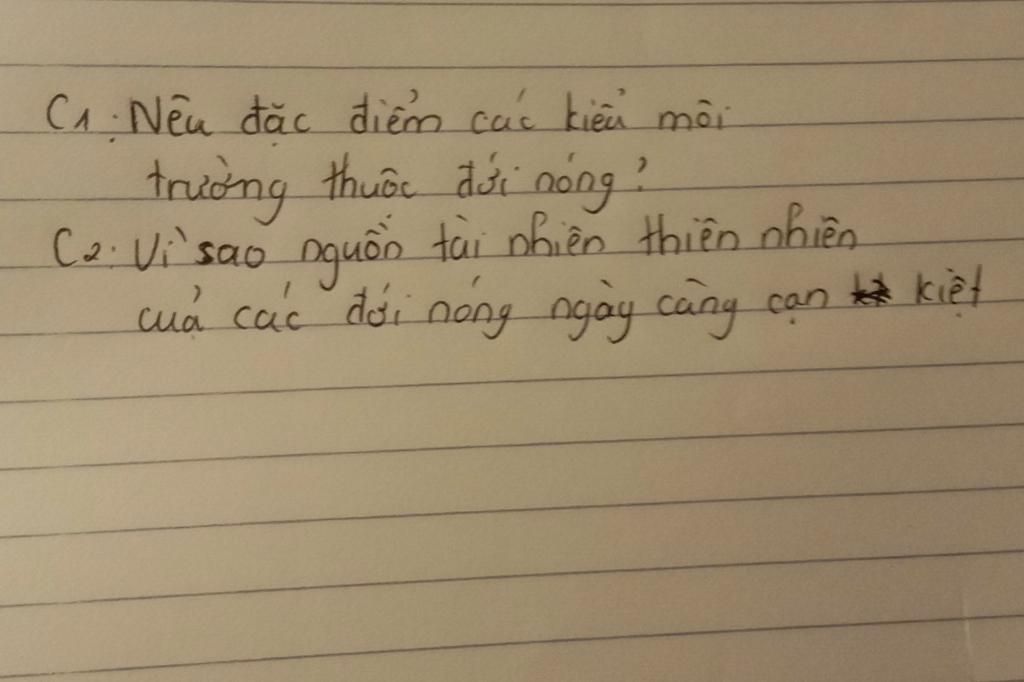 C1: Nêu đặc điểm các kiểu môi
trường thuộc đới nóng?
C2: Vì sao nguồn tài nhiên thiên nhiên
cuả các đới nóng ngày càng cạn kiệt